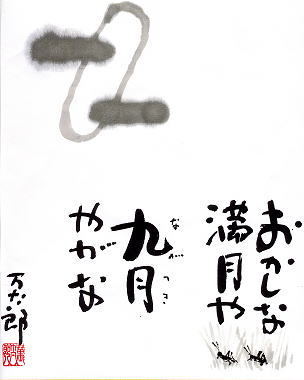 おかしな
満月や
九月
ながつき
やがな
万太郎